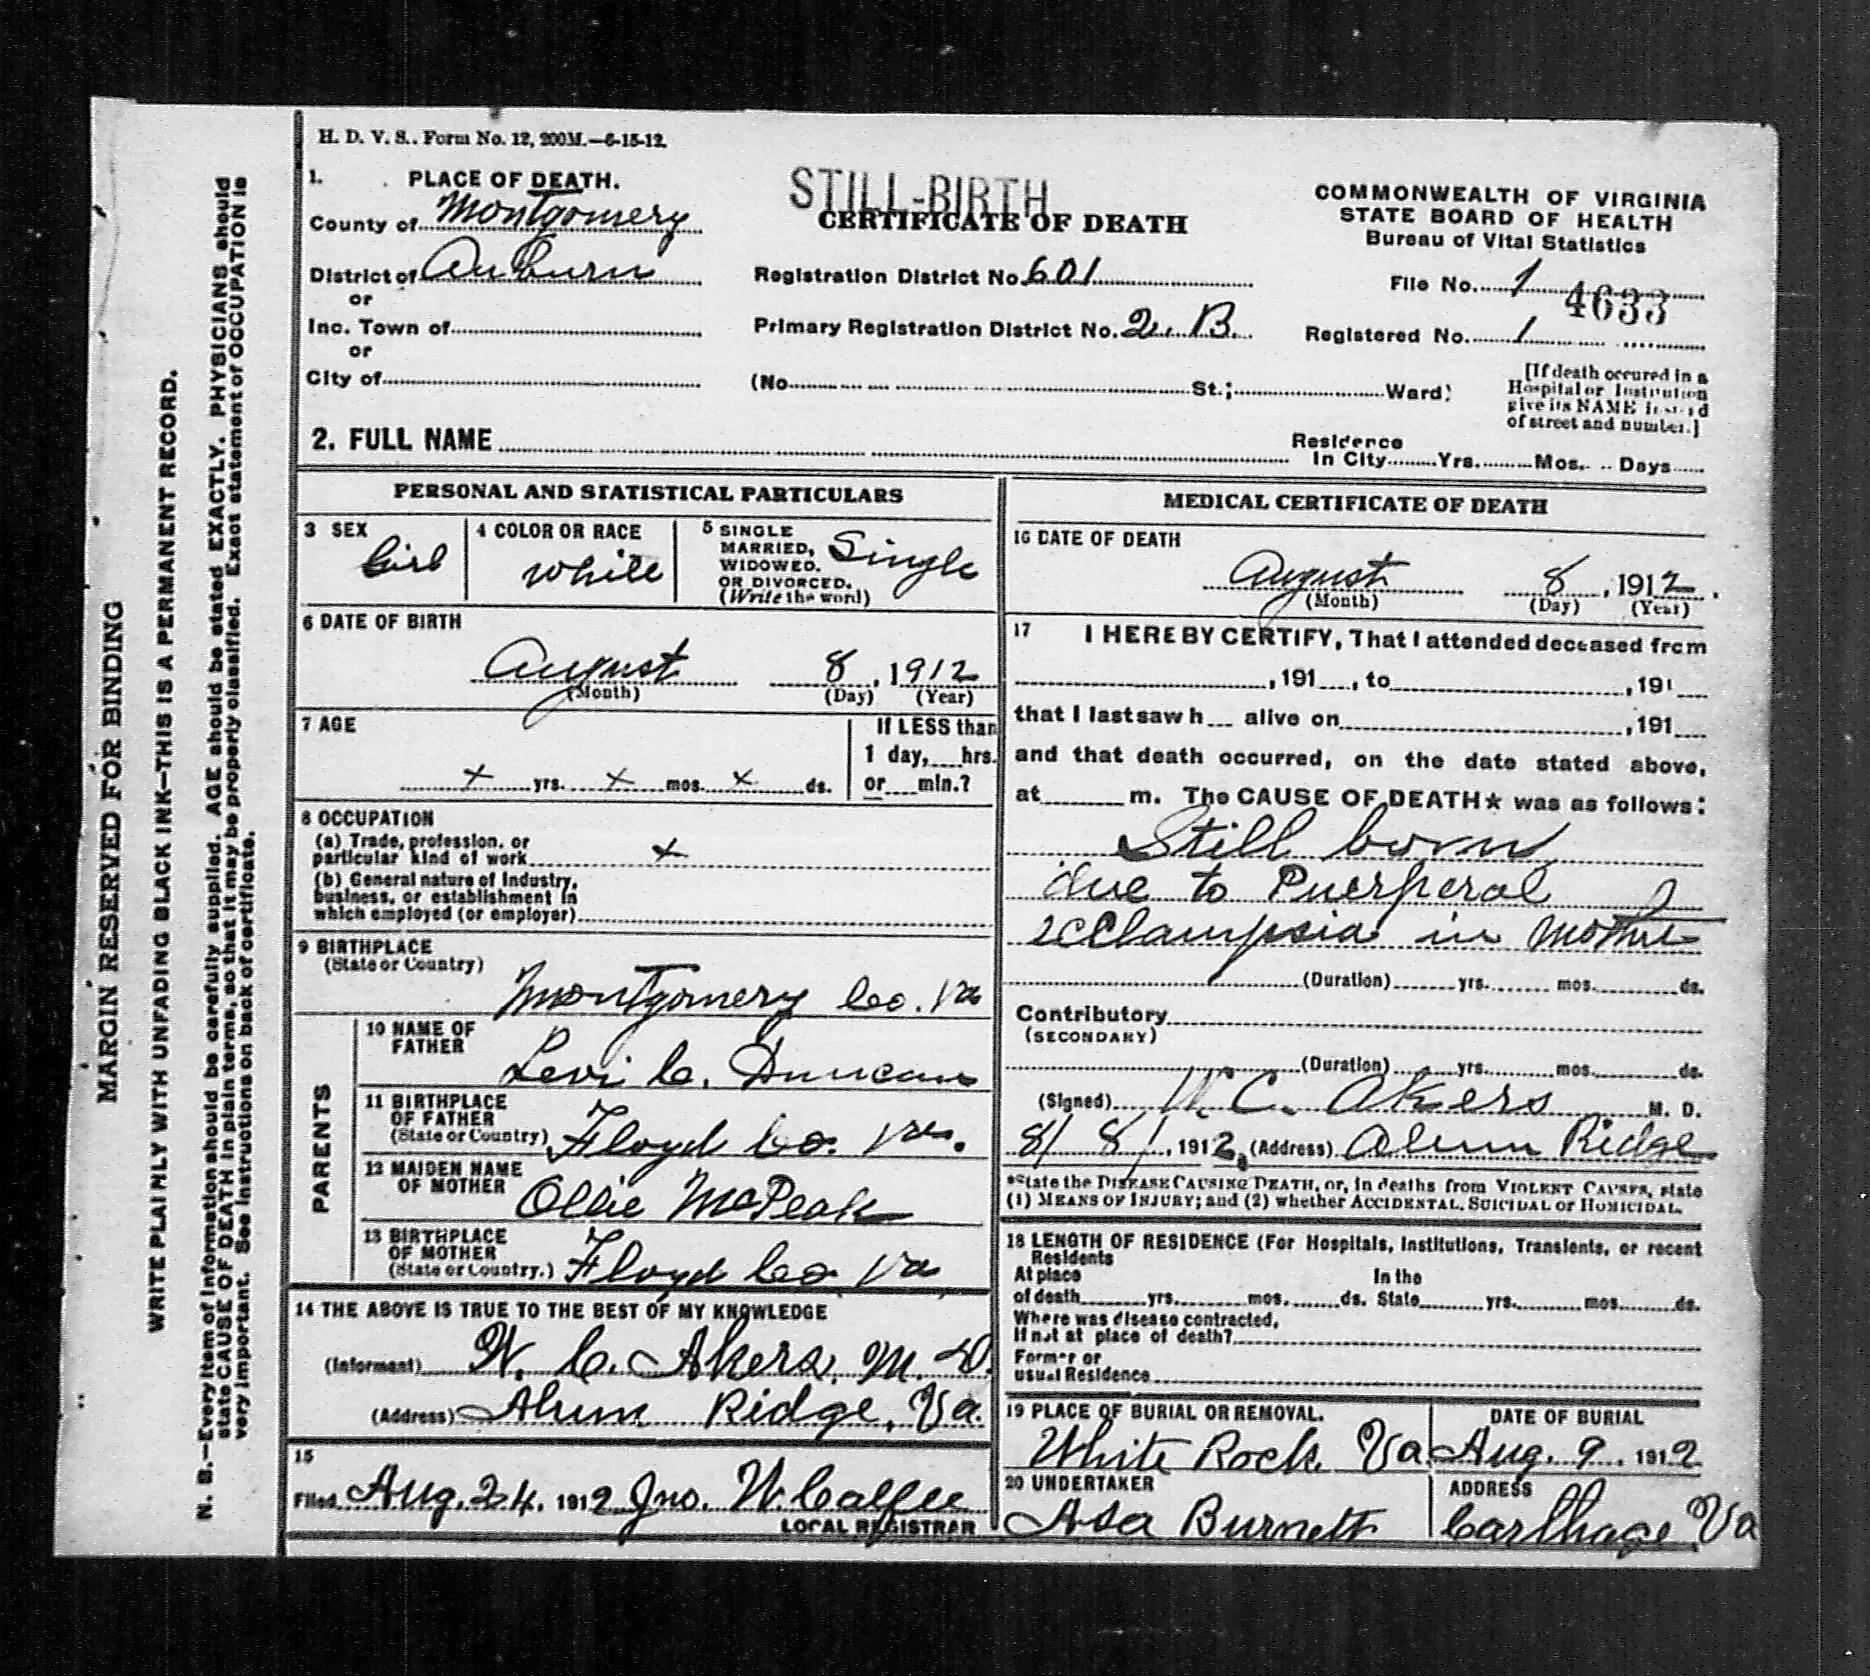 H. D. V. S.. Form No. 12, 200M.—6-15-12.
1. PLACE OF DEATH.
County of Montgomery
District of Auburn
or
Inc. Town of
or
City of
STILL-BIRTH
CERTIFICATE OF DEATH
Registration District No. 601
Primary Registration District No. 2. B.
(No. St.; Ward)
COMMONWEALTH OF VIRGINIA
STATE BOARD OF HEALTH
Bureau of Vital Statistics
File No. 1 4633
Registered No. 1
[If death occured in a
Hospital or Institution
give its NAME instead
of street and number.]
2. FULL NAME
Residence
In City Yrs. Mos. Days
PERSONAL AND STATISTICAL PARTICULARS
3 SEX
Girl
4 COLOR OR RACE
White
5 SINGLE
MARRIED,
WIDOWED.
OR DIVORCED.
(Write the word)
Single
6 DATE OF BIRTH
August 8, 1912
(Month) (Day) (Year)
7 AGE
x yrs. x mos. x ds.
If LESS than
1 day, hrs.
or min.?
8 OCCUPATION
(a) Trade, profession, or
particular kind of work x
(b) General nature of Industry,
business, or establishment in
which employed (or employer)
9 BIRTHPLACE
(State or Country)
Montgomery Co. Va
PARENTS
10 NAME OF
FATHER
Levi C. Duncan
11 BIRTHPLACE
OF FATHER
(State or Country) Floyd Co. Va.
12 MAIDEN NAME
OF MOTHER Ollie McPeak
13 BIRTHPLACE
OF MOTHER
(State or Country.) Floyd Co Va
14 THE ABOVE IS TRUE TO THE BEST OF MY KNOWLEDGE
(Informant) W. C. Akers, M. D.
(Address) Alum Ridge, Va.
15
Filed Aug. 24. 1912 Jno. W. Calfee
LOCAL REGISTRAR
MEDICAL CERTIFICATE OF DEATH
16 DATE OF DEATH
August 8, 1912.
(Month) (Day) (Year)
17 I HEREBY CERTIFY, That I attended deceased from
, 191 , to , 191
that I last saw h alive on , 191
and that death occurred, on the date stated above,
at m. The CAUSE OF DEATH★ was as follows:
Still born
due to Puerperal
ecclampsia in mother
(Duration) yrs. mos. ds.
Contributory
(SECONDARY)
(Duration) yrs. mos. ds.
(Signed) W. C. Akers M. D.
8/ 8/, 1912, (Address) Alum Ridge
*State the DISEASE CAUSING DEATH, or, in deaths from VIOLENT CAUSES, state
(1) MEANS OF INJURY; and (2) whether ACCIDENTAL, SUICIDAL or HOMICIDAL.
18 LENGTH OF RESIDENCE (For Hospitals, Institutions, Transients, or recent
Residents
At place In the
of death yrs. mos. ds. State yrs. mos. ds.
Where was disease contracted,
If not at place of death?
Former or
usual Residence
19 PLACE OF BURIAL OR REMOVAL.
White Rock Va
DATE OF BURIAL
Aug. 9. 1912
20 UNDERTAKER
Asa Burnett
ADDRESS
Carthage, Va
MARGIN RESERVED FOR BINDING
WRITE PLAINLY WITH UNFADING BLACK INK—THIS IS A PERMANENT RECORD.
N. B.—Every item of information should be carefully supplied. AGE should be stated EXACTLY. PHYSICIANS should
state CAUSE OF DEATH in plain terms, so that it may be properly classified. Exact statement of OCCUPATION is
very important. See instructions on back of certificate.